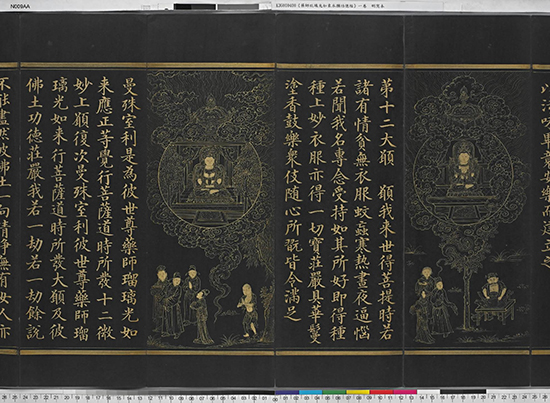 N009AA
第十二大願　願我來世得菩提時若
諸有情貧無衣服蚊蝱寒熱晝夜逼惱
若聞我名專念受持如其所好即得種
種上妙衣服亦得一切寶莊嚴具華鬘
塗香鼓樂衆伎隨心所翫皆令滿足
曼殊室利是為彼世尊藥師瑠璃光如
來應正等覺行菩薩道時所發十二微
妙上願復次曼殊室利彼世尊藥師瑠
璃光如來行菩薩道時所發大願及彼
佛土功德莊嚴我若一劫若一劫餘說
不能盡然彼佛土一向清淨無有女人亦